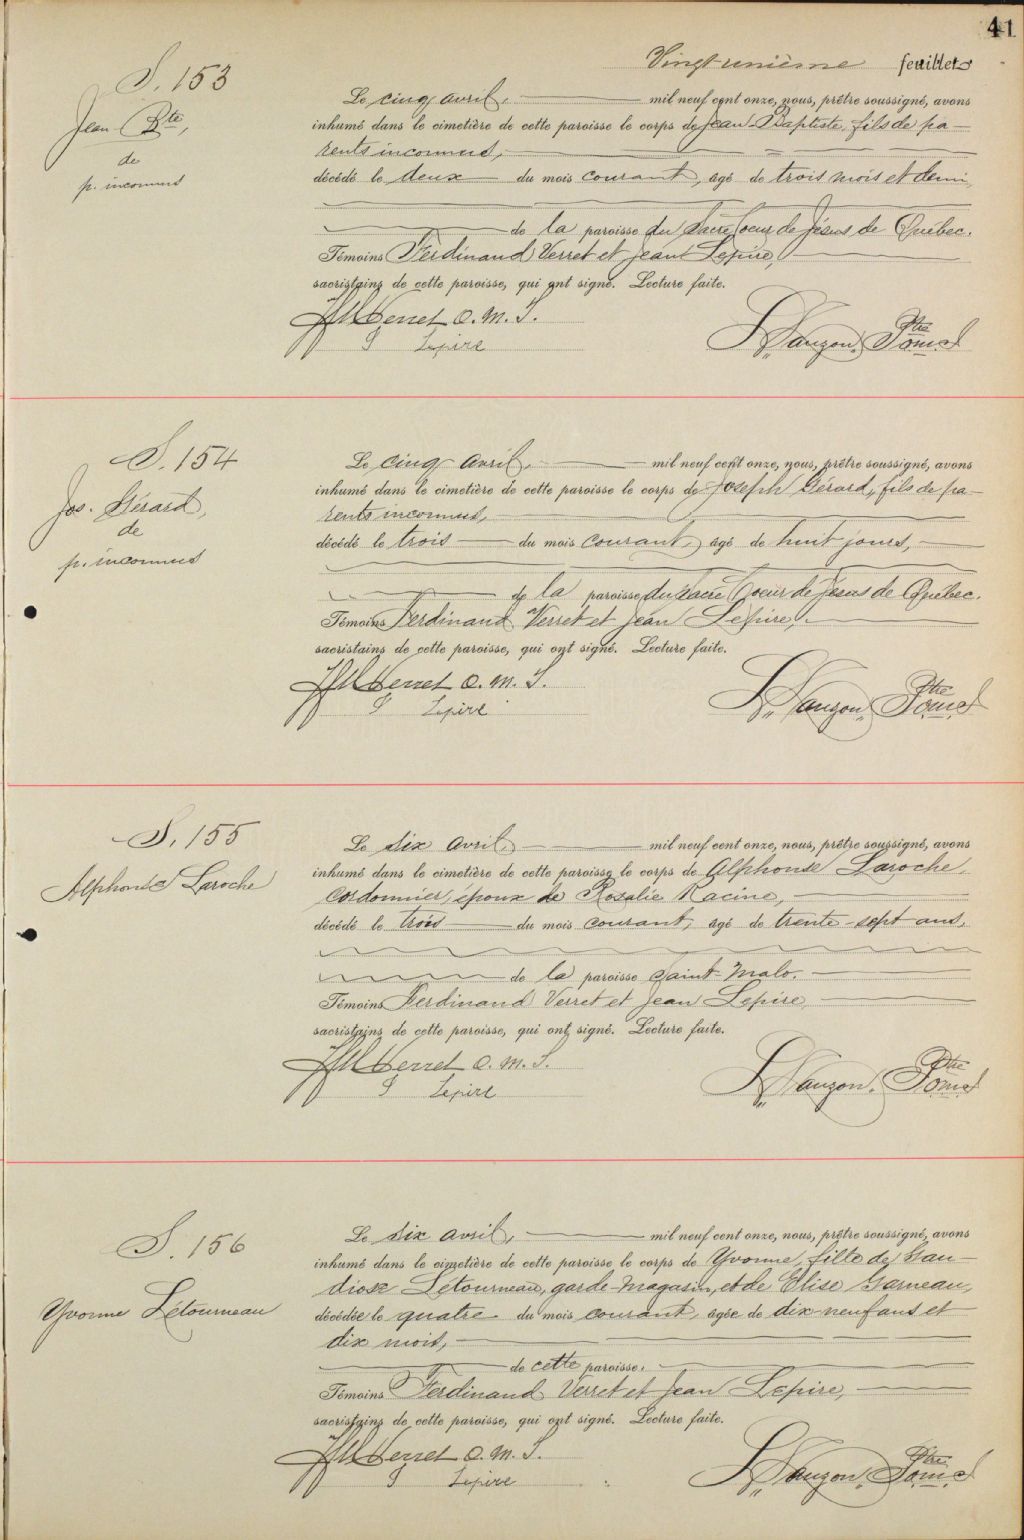 41
Vingt-unième feuillet
S. 153
Jean Bte,
de
p. inconnus
Le cinq avril, mil neuf cent onze, nous, prêtre soussigné, avons
inhumé dans le cimetière de cette paroisse le corps de Jean-Baptiste, fils de pa-
rents inconnus,
décédé le deux du mois courant, âgé de trois mois et demi,
de la paroisse du Sacré Coeur de Jésus de Québec.
Témoins Ferdinand Verret et Jean Lepire,
sacristains de cette paroisse, qui ont signé. Lecture faite.
Verret O. M. S.
J Lepire
Lauzon, Ptre
O.M.I.
S. 154
Jos. Gérard,
de
p. inconnus
Le cinq avril, mil neuf cent onze, nous, prêtre soussigné, avons
inhumé dans le cimetière de cette paroisse le corps de Joseph Gérard, fils de pa-
rents inconnus,
décédé le trois du mois courant, âgé de huit jours,
de la paroisse du Sacré Coeur de Jésus de Québec.
Témoins Ferdinand Verret et Jean Lepire,
sacristains de cette paroisse, qui ont signé. Lecture faite.
Verret O. M. S.
J Lepire
Lauzon, Ptre
O.M.I.
S. 155
Alphonse Laroche
Le six avril, mil neuf cent onze, nous, prêtre soussigné, avons
inhumé dans le cimetière de cette paroisse le corps de Alphonse Laroche,
cordonnier, époux de Rosalie Racine,
décédé le trois du mois courant, âgé de trente-sept ans,
de la paroisse Saint-Malo.
Témoins Ferdinand Verret et Jean Lepire,
sacristains de cette paroisse, qui ont signé. Lecture faite.
Verret O. M. S.
J Lepire
Lauzon, Ptre
O.M.I.
S. 156
Yvonne Létourneau
Le six avril, mil neuf cent onze, nous, prêtre soussigné, avons
inhumé dans le cimetière de cette paroisse le corps de Yvonne, fille de Gau-
diose Létourneau, garde-magasin, et de Elise Garneau,
décédée le quatre du mois courant, âgée de dix-neuf ans et
dix mois,
de cette paroisse.
Témoins Ferdinand Verret et Jean Lepire,
sacristains de cette paroisse, qui ont signé. Lecture faite.
Verret O. M. S.
J Lepire
Lauzon, Ptre
O.M.I.